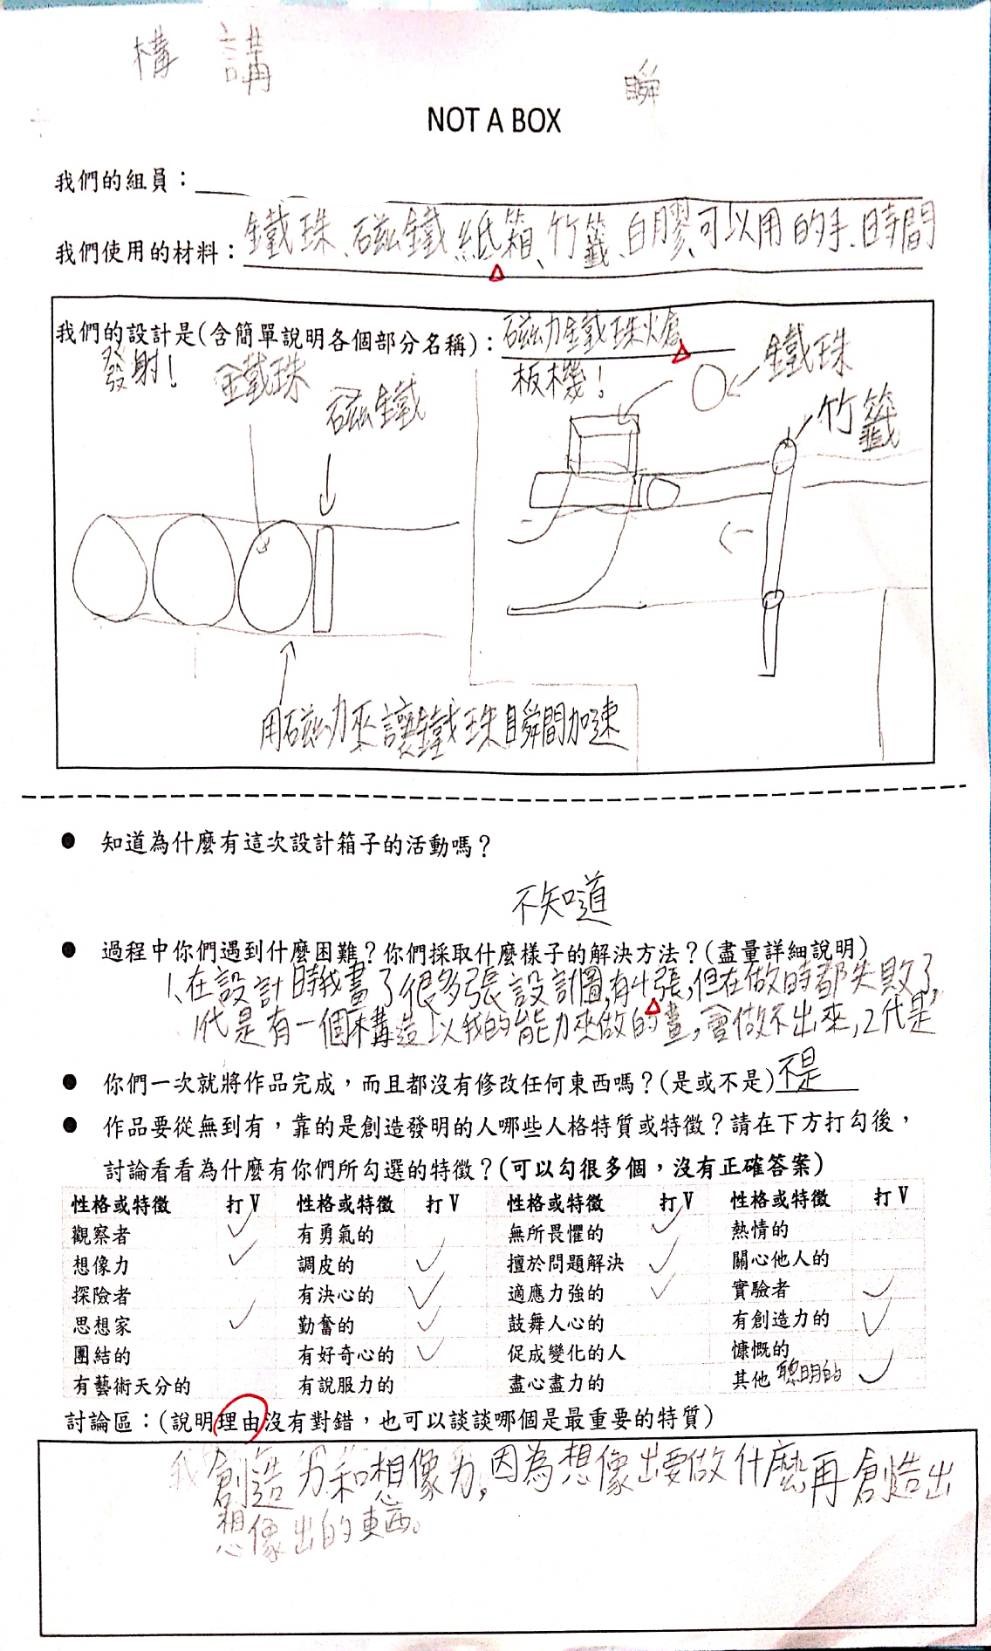 構 講
瞬
NOT A BOX
我們的組員：
我們使用的材料：鐵珠、磁鐵、紙箱、竹籤、白膠、可以用的手、時間
我們的設計是(含簡單說明各個部分名稱)：磁力鐵珠火槍
發射！
鐵珠
磁鐵
板機！
鐵珠
竹籤
用磁力來讓鐵珠瞬間加速
● 知道為什麼有這次設計箱子的活動嗎？
不知道
● 過程中你們遇到什麼困難？你們採取什麼樣子的解決方法？(盡量詳細說明)
1、在設計時我畫了很多張設計圖,有4張,但在做時都失敗了,
1代是有一個構造以我的能力來做的畫,會做不出來,2代是
● 你們一次就將作品完成，而且都沒有修改任何東西嗎？(是或不是)不是
● 作品要從無到有，靠的是創造發明的人哪些人格特質或特徵？請在下方打勾後，
討論看看為什麼有你們所勾選的特徵？(可以勾很多個，沒有正確答案)
性格或特徵 打V 性格或特徵 打V 性格或特徵 打V 性格或特徵 打V
觀察者 ✓ 有勇氣的 無所畏懼的 ✓ 熱情的
想像力 ✓ 調皮的 ✓ 擅於問題解決 ✓ 關心他人的
探險者 有決心的 ✓ 適應力強的 ✓ 實驗者 ✓
思想家 ✓ 勤奮的 ✓ 鼓舞人心的 有創造力的 ✓
團結的 有好奇心的 ✓ 促成變化的人 慷慨的
有藝術天分的 有說服力的 盡心盡力的 其他 聰明的 ✓
討論區：(說明理由沒有對錯，也可以談談哪個是最重要的特質)
創造力和想像力,因為想像出要做什麼再創造出
想像出的東西。